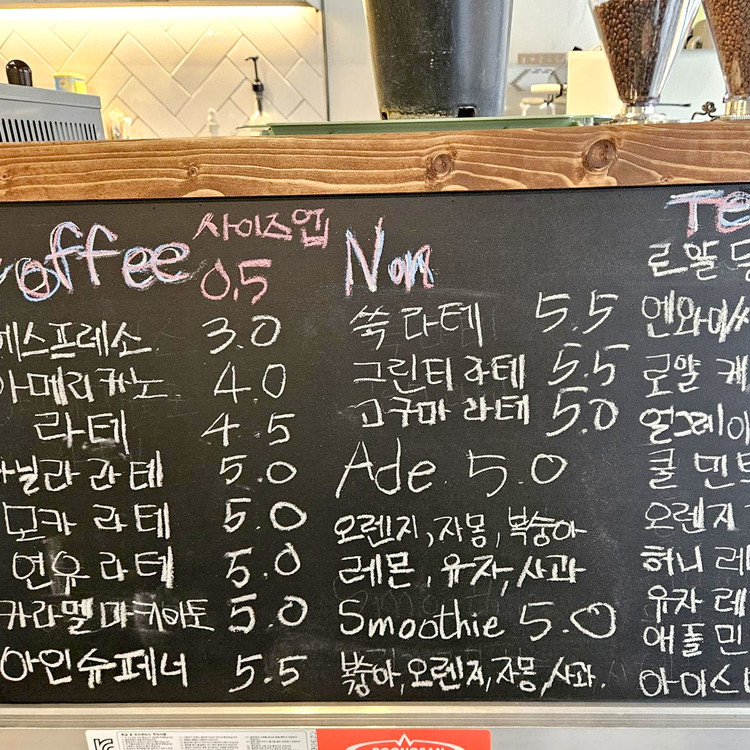 Coffee 사이즈업
0.5
에스프레소 3.0
아메리카노 4.0
라테 4.5
바닐라 라테 5.0
모카 라테 5.0
연유 라테 5.0
카라멜마키아토 5.0
아인슈페너 5.5
Non
쑥 라테 5.5
그린티 라테 5.5
고구마 라테 5.0
Ade 5.0
오렌지, 자몽, 복숭아
레몬, 유자, 사과
Smoothie 5.0
복숭아, 오렌지, 자몽, 사과.
Te
로얄
로얄 케
얼그레이
쿨 민트
오렌지
허니 레
유자 레
애플 민
아이스